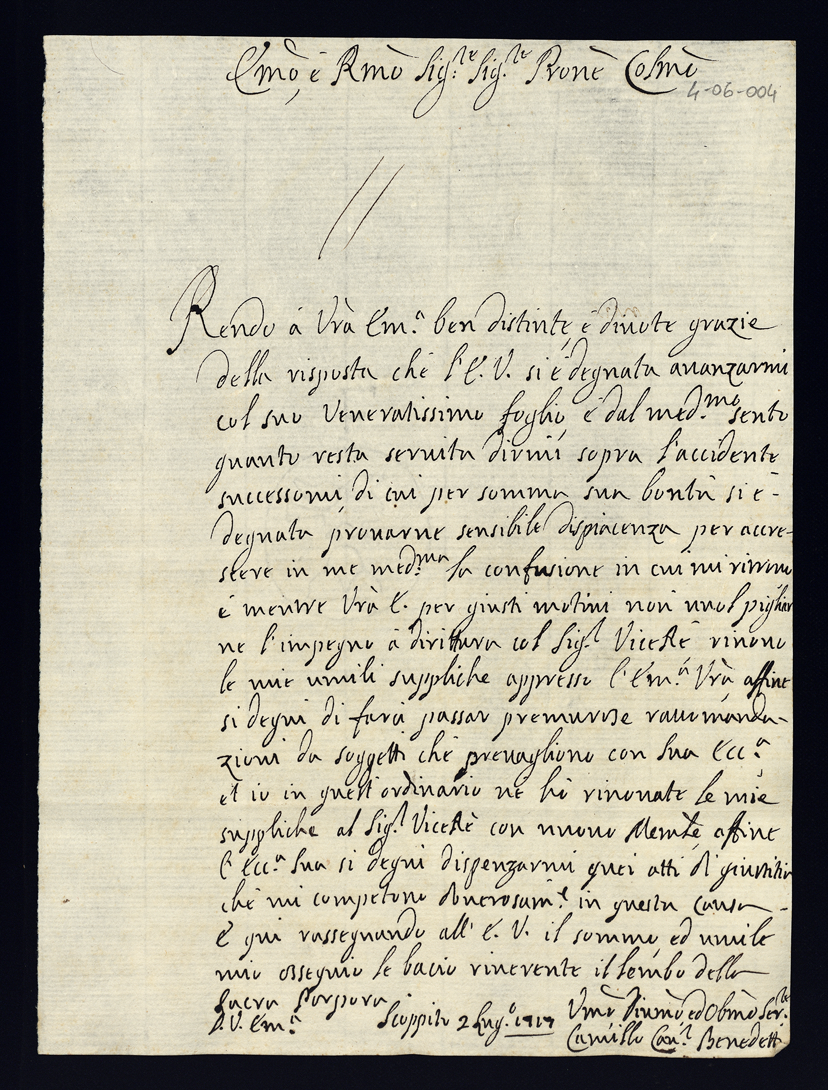 Emo, e Rmo Sig.re Sig.re Prone Colmo
4-06-004
Rendo à Vrà Em.a ben distinte, e divote grazie
della risposta chè l'E. V. si è degnata avanzarmi
col suo Veneratissimo foglio, è dal med.mo sento
quanto resta servita dirmi sopra l'accidente
successomi, di cui per somma sua bontà si è -
degnata provarne sensibile dispiacenza per accre-
scere in me med.ma la confusione in cui mi ritrovo
è mentre Vrà E. per giusti motivi non vuol pigliar
ne l'impegno à dirittura col Sig.r ViceRè rinovo
le mie umili suppliche appresso l'Em.a Vrà affine
si degni di farci passar premurose raccomanda-
zioni da soggetti chè prevagliono con Sua Ecc.a
et io in quest'ordinario ne hò rinovate le mie
suppliche al Sig.r ViceRè con nuovo Memle affine
l'Ecc.a Sua si degni dispenzarmi quei atti di giustitia
chè mi competono in questa Causa -
E qui rassegnando all'E. V. il sommo, ed umile
mio ossequio le bacio riverente il lembo della
Sacra Porpora
D. V. Em.a Scoppito 2 Lug.o 1717 Umo Divmo ed Obmo Ser.re
Camillo Can.co Benedetti